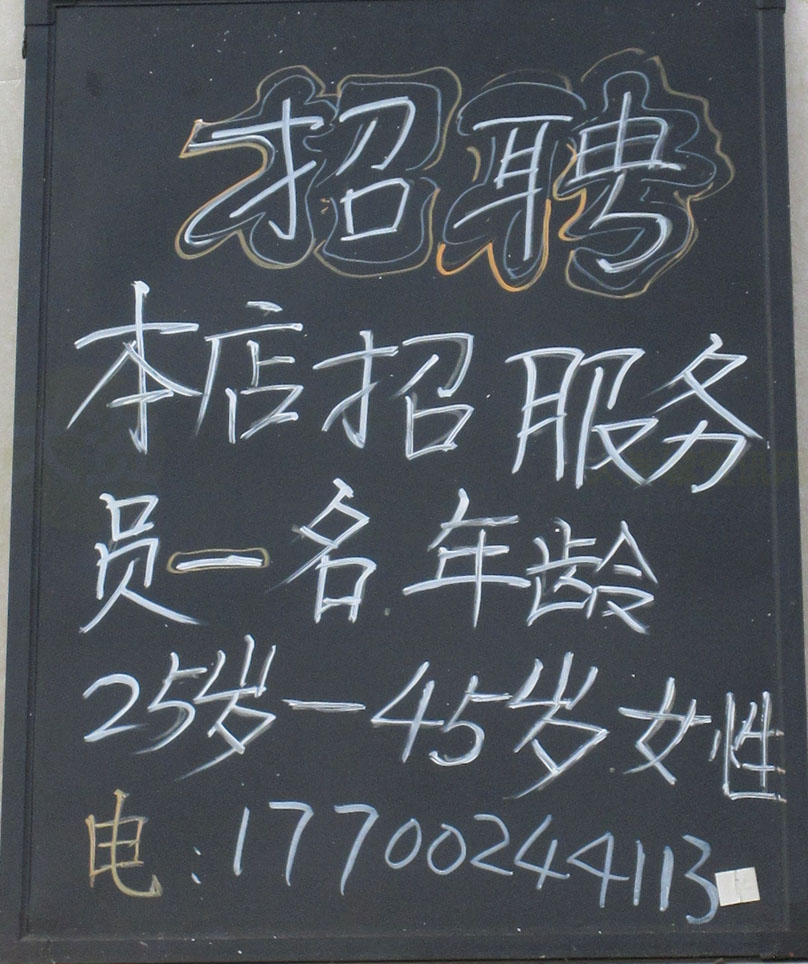 招聘
本店招服务
员一名年龄
25岁一45岁女性
电:17700244113